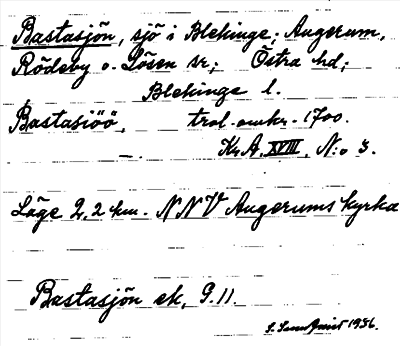 Bastasjön, sjö i Blekinge; Augerum,
Rödeby o. Lösen sr; Östra hd;
Blekinge l.
Bastasiöö, trol. omkr. 1700.
KrA. XVIII, N:o 3.
Läge 2,2 km. NNV Augerums kyrka
Bastasjön ek, G.II.
1936.